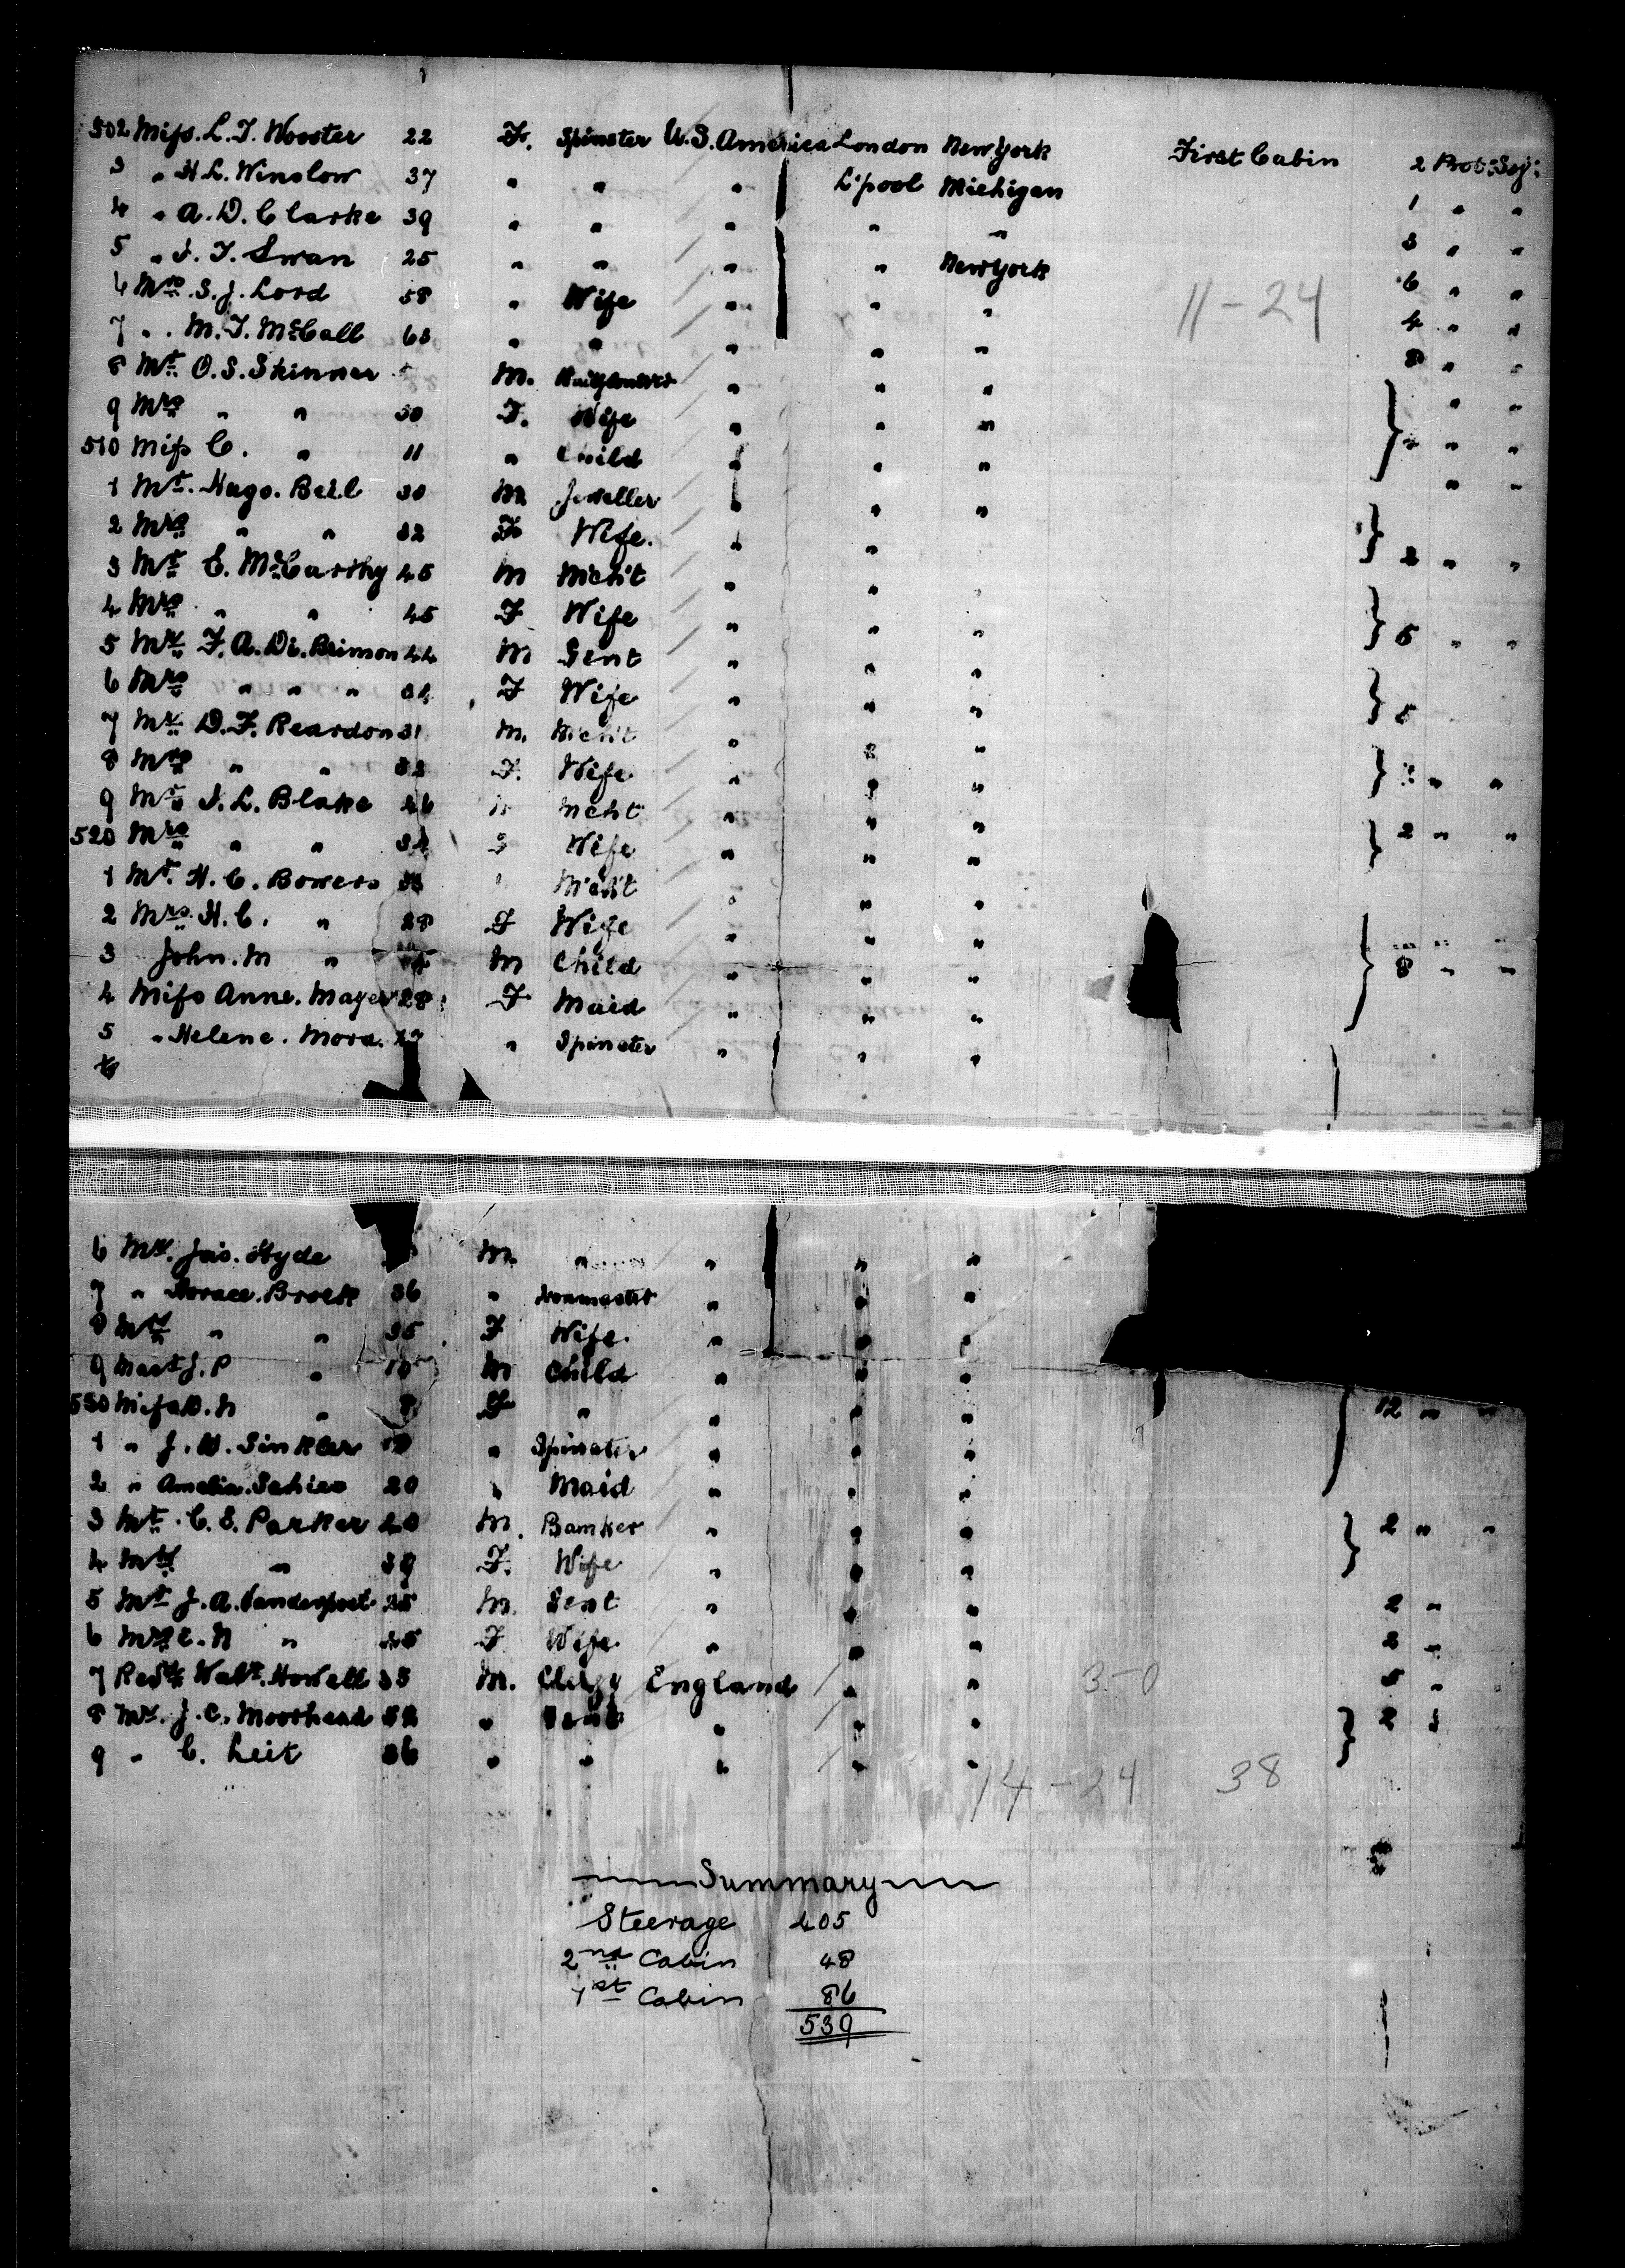 502 Miss. L. T. Wooster 22 F. Spinster U.S. America London New York First Cabin 2 Prot: Soj:
3 " H. L. Winslow 37 " " " L'pool Michigan 1 " "
4 " A. D. Clarke 39 " " " " " 3 " "
5 " J. T. Swan 25 " " " " New York 6 " "
6 Mrs. S. J. Lord 58 " Wife " " " 4 " "
11-24
7 " M. T. McCall 63 " " " " " "
8 Mr. O. S. Skinner M. " " " " "
9 Mrs " " 50 F. Wife " " " " "
510 Miss C. " 11 " Child " " " " "
1 Mr. Hugo. Beil 30 M Jeweller " " "
2 Mrs " " 32 F Wife. " " 2 " "
3 Mr. C. McCarthy 45 M Mcht " "
4 Mrs " " 45 F Wife " " " 5 " "
5 Mr. F. A. De. Brimon 44 M Gent " " "
6 Mrs " " " 34 F Wife " " " 5
7 Mr. D. F. Reardon 31 M. Mcht " " "
8 Mrs " " 33 F. Wife " " " " "
9 Mr. J. L. Blake 46 Mcht " " "
520 Mrs " " 34 Wife " " " 2 " "
1 Mr. H. C. Bowers Mcht " " "
2 Mrs. H. C. " 28 F Wife " " " " "
3 John. M " M Child " " " 8 " "
4 Miss Anne. Mayer 28 F Maid " " "
5 " Helene. Mora. " Spinster " " "
6
6 Mr. Jas. Hyde M. " " " "
7 " Horace. Brock 36 " Ironmaster " " "
8 Mrs " " 35 F Wife. " " "
9 Mast J. P " 10 M Child " " "
530 Miss D. N " 8 F " " " " 12 " "
1 " J. W. Sinkler " Spinster " " "
2 " Amelia. 20 " Maid " " "
3 Mr. C. E. Parker 40 M. Banker " " " 2 " "
4 Mrs " 39 F. Wife " " "
5 Mr. J. A. Vanderpoel M. Gent " " " 2 "
6 Mrs E. N " F Wife " " " "
7 Revd. Walt. Howell 33 M. Clergy England " " 3-0 5 "
8 Mr. J. C. Moorhead 52 " Gent " " " 2 "
9 " C. Leit 36 " " " " "
14-24 38
Summary
Steerage 405
2nd Cabin 48
1st Cabin 86
539